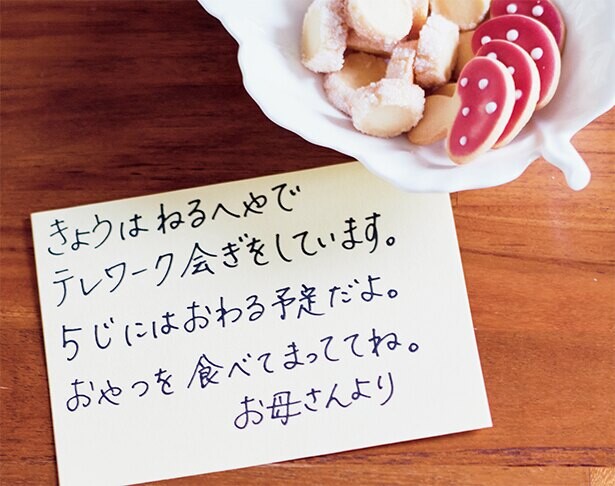 きょうはねるへやで
テレワーク会ぎをしています。
5じにはおわる予定だよ。
おやつを食べてまっててね。
お母さんより